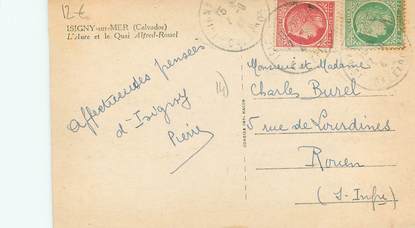 12-€
ISIGNY-sur-MER (Calvados)
L'Aure et le Quai Alfred-Rossel
Affectueuses pensées
d'Isigny
Pierre
Monsieur et Madame
Charles Burel
5 rue de Lourdines
Rouen
(S-Infre)